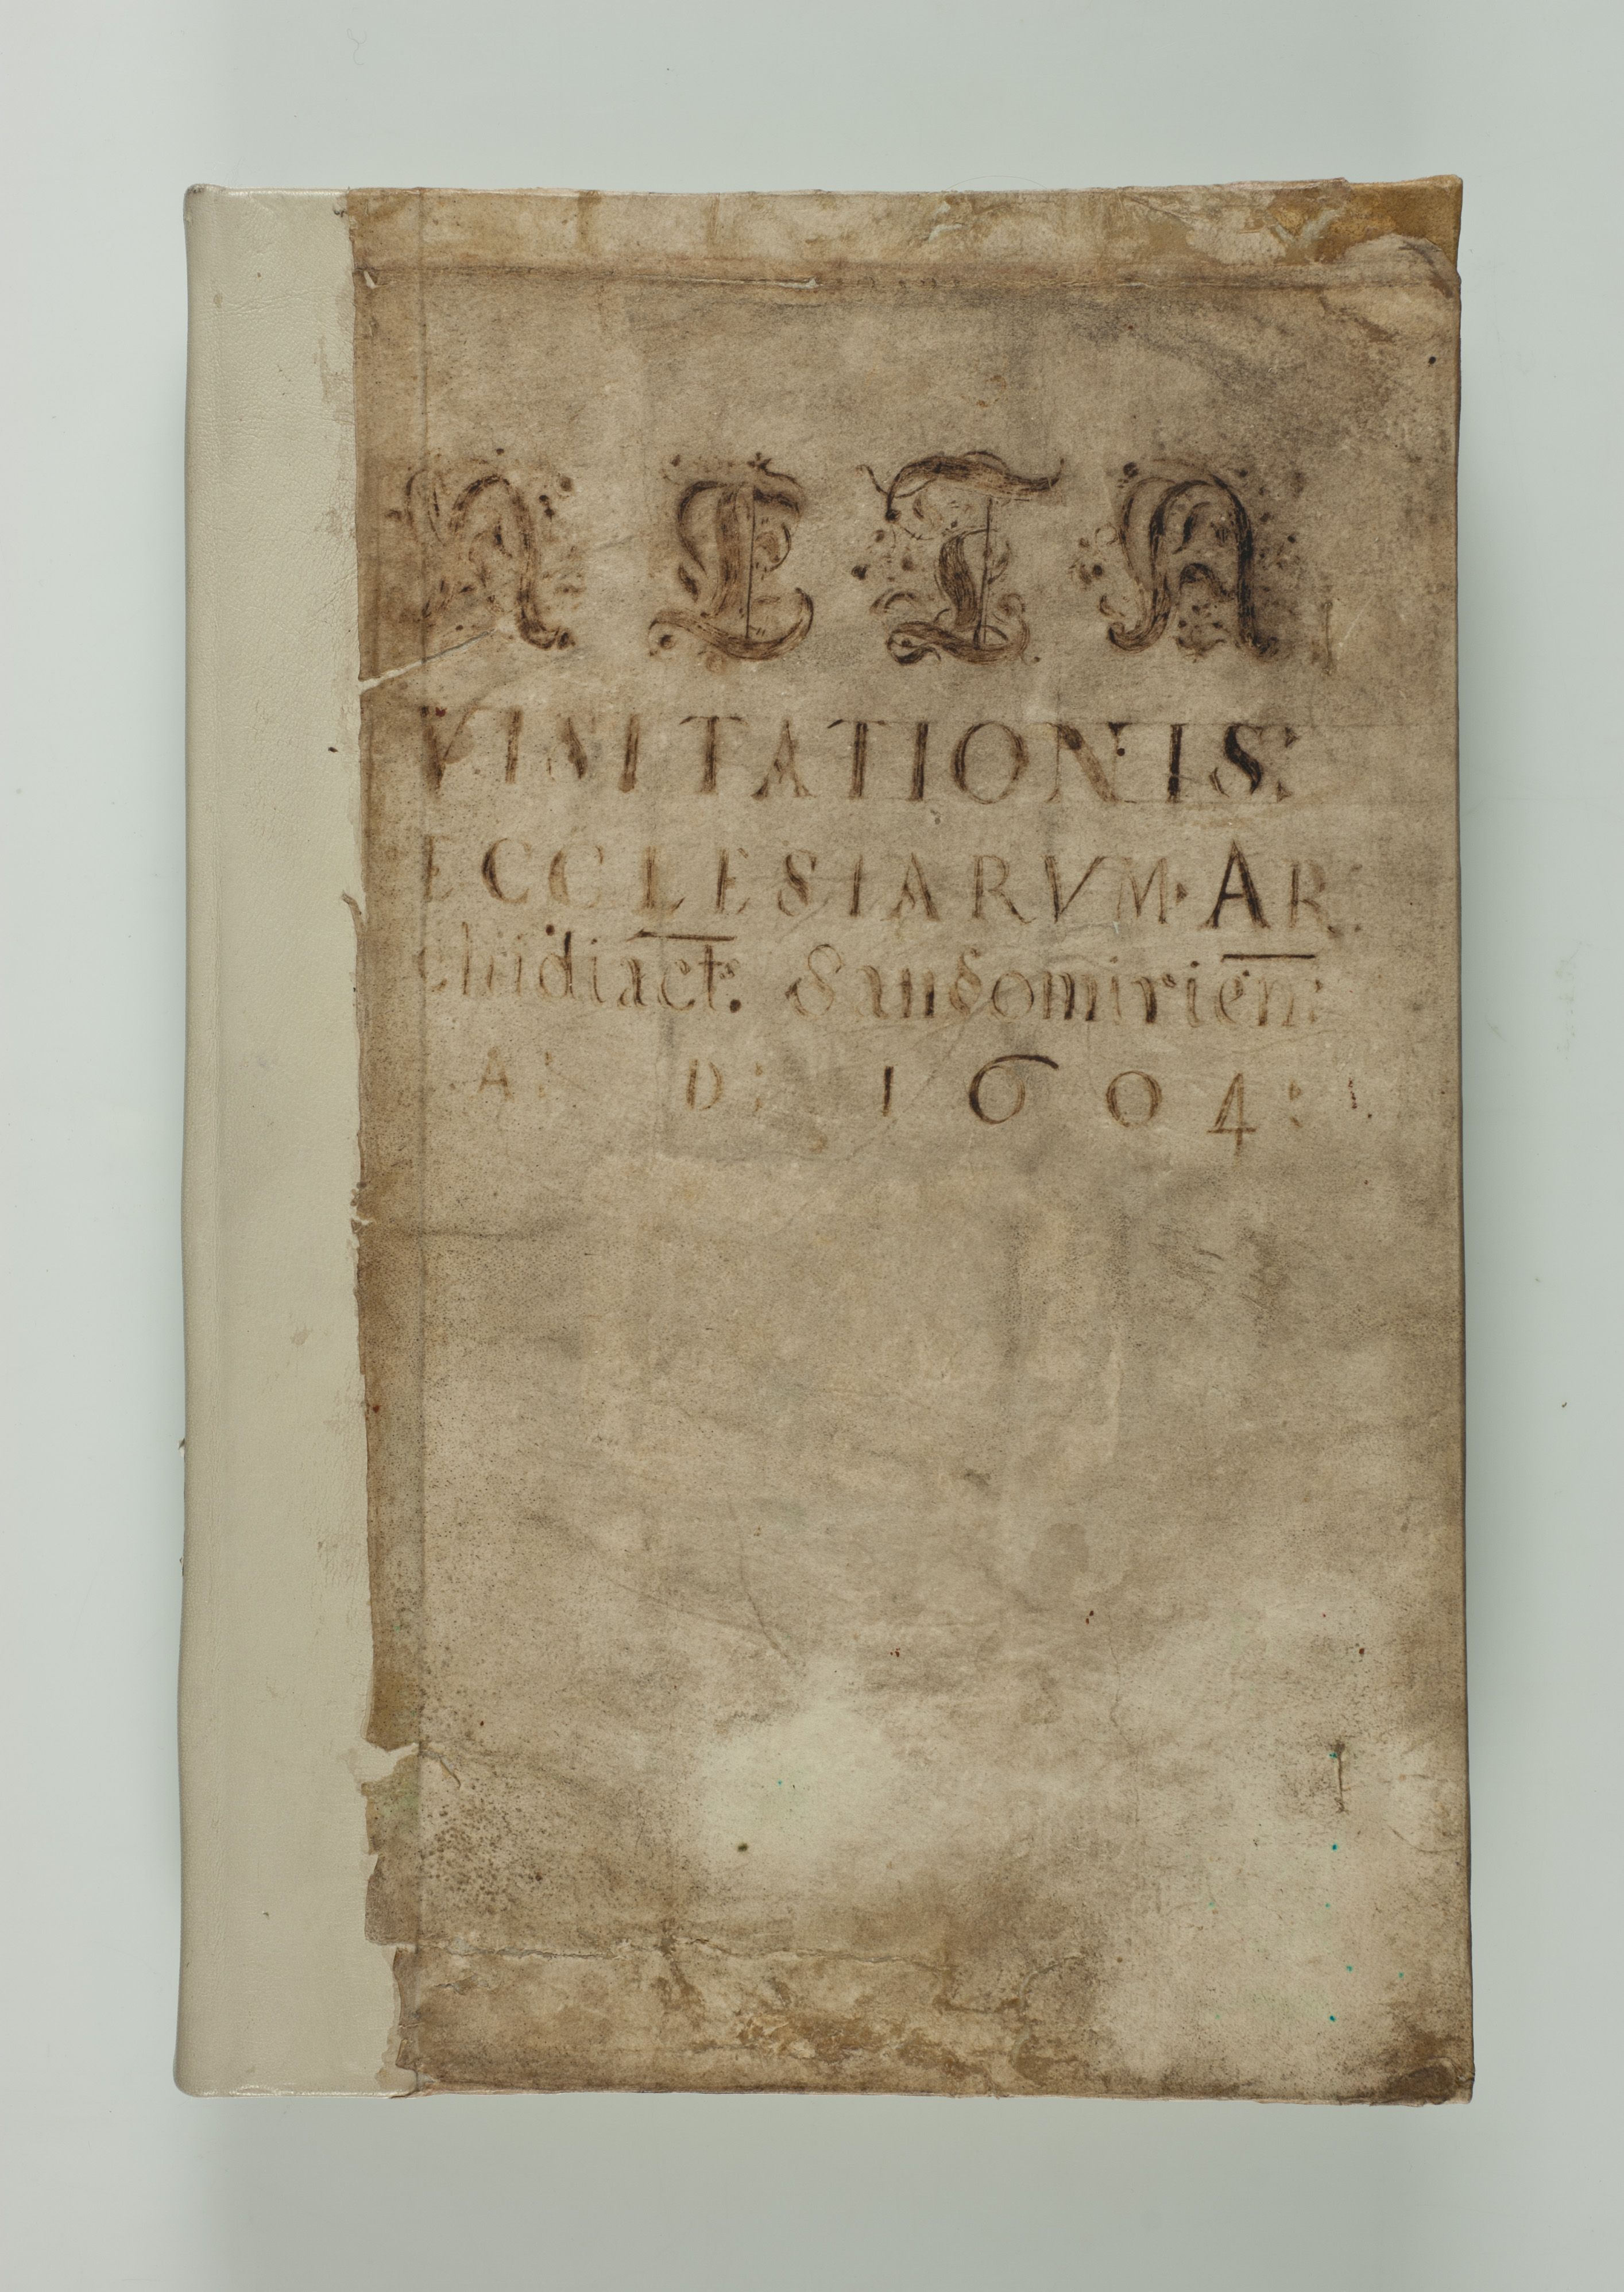 ACTA
VISITATIONIS:
ECCLESIARVM· AR
chidiact. Sandomirien:
A: D: 1604: